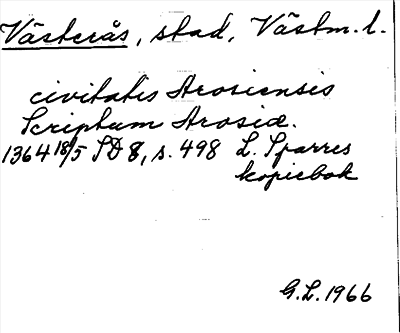 Västerås, stad, Västm. l.
civitatis Arosiensis
Scriptum Arosiæ.
1364 18/5 SD 8, s. 498 L. Sparres
kopiebok
G.L. 1966